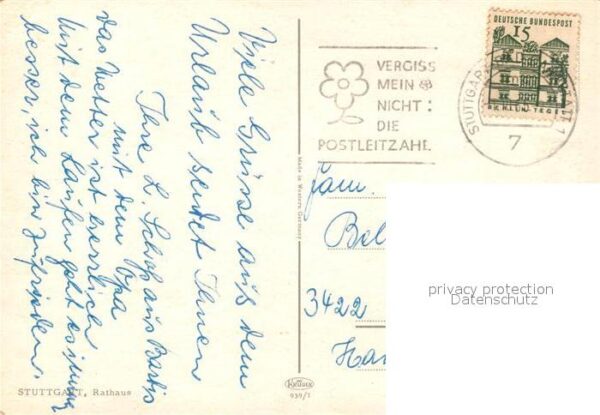 Viele Grüsse aus dem
Urlaub sendet Ihnen
Ihre L. Scholz aus Bartis
mit dem Opa
das Wetter ist herrlich
Mit dem Laufen geht es
besser, ich bin zufrieden.
STUTTGART, Rathaus
Made in Western Germany
Krüger
939/1
VERGISS
MEIN
NICHT:
DIE
POSTLEITZAHL
DEUTSCHE BUNDESPOST
15
STUTTGART
7
Fam.
Bel
3422
Ha
privacy protection
Datenschutz